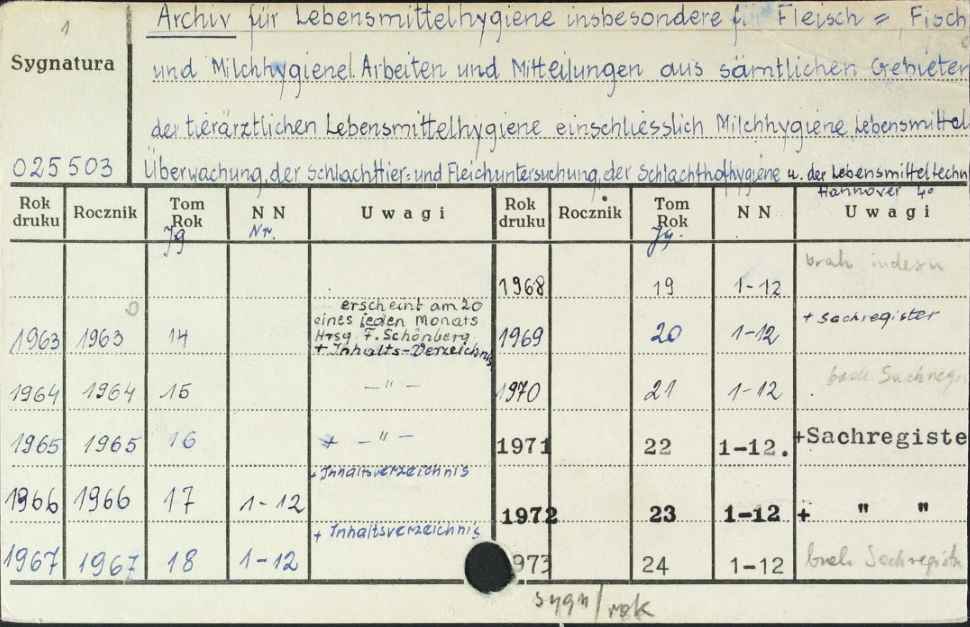 1
Archiv für Lebensmittelhygiene insbesondere f Fleisch = Fisch
Sygnatura
und Milchhygiene| Arbeiten und Mitteilungen aus sämtlichen Gebieten
der tierärztlichen Lebensmittelhygiene einschliesslich Milchhygiene Lebensmittel
025503
Überwachung, der Schlachttier= und Fleichuntersuchung, der Schlachthofhygiene u. der Lebensmitteltechn
Hannover 4°
Rok druku Rocznik Tom Rok N N Uwagi Rok druku Rocznik Tom Rok N N Uwagi
Jg Nr. Jg.
1968 19 1-12 brak indexu
1963 1963 14 erscheint am 20 1969 20 1-12 + Sachregister
eines jeden Monats
Hrsg F. Schönberg
+ Inhalts-Verzeichnis
1964 1964 15 — " — 1970 21 1-12 brak Sachreg
1965 1965 16 * — " — 1971 22 1-12. +Sachregiste
1966 1966 17 1-12 + Inhaltsverzeichnis 1972 23 1-12 + " "
1967 1967 18 1-12 + Inhaltsverzeichnis 973 24 1-12 brak Sachregistr
sygn/rok